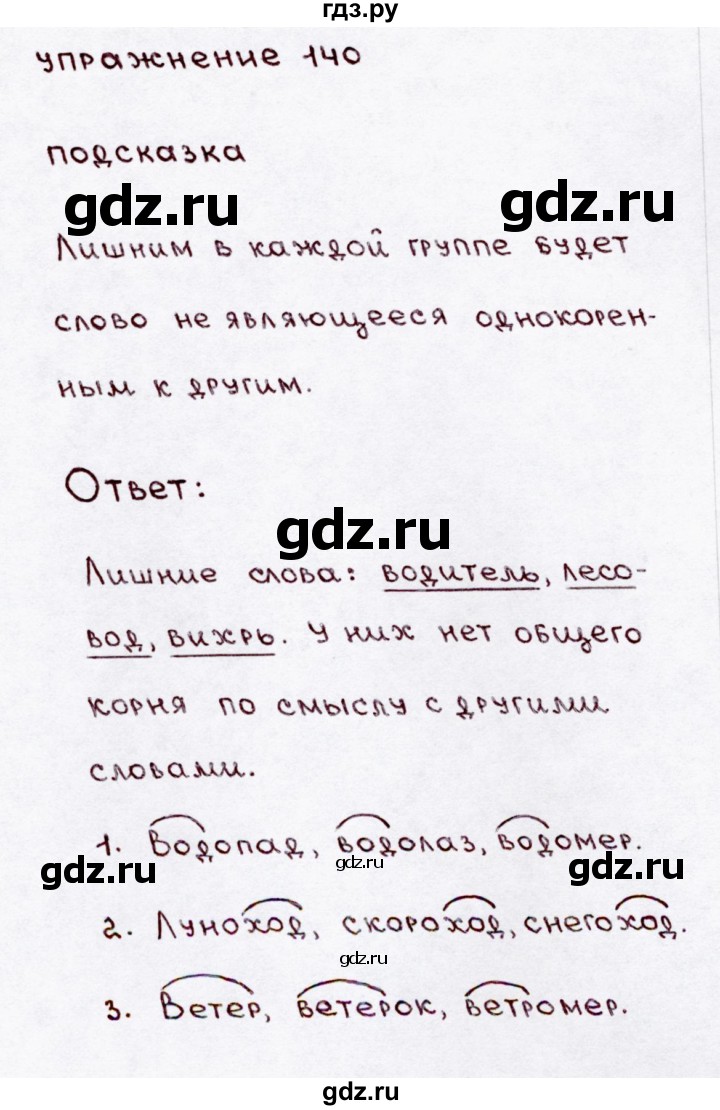 гдз.ру
упражнение 140
подсказка
gdz.ru gdz.ru
Лишним в каждой группе будет
слово не являющееся однокорен-
ным к другим.
Ответ:
gdz.ru
Лишние слова: водитель, лесо-
вод, вихрь. У них нет общего
корня по смыслу с другими
словами.
1. Водопад, водолаз, водомер.
gdz.ru gdz.ru gdz.ru
2. Луноход, скороход, снегоход.
gdz.ru
3. Ветер, ветерок, ветромер.
gdz.ru